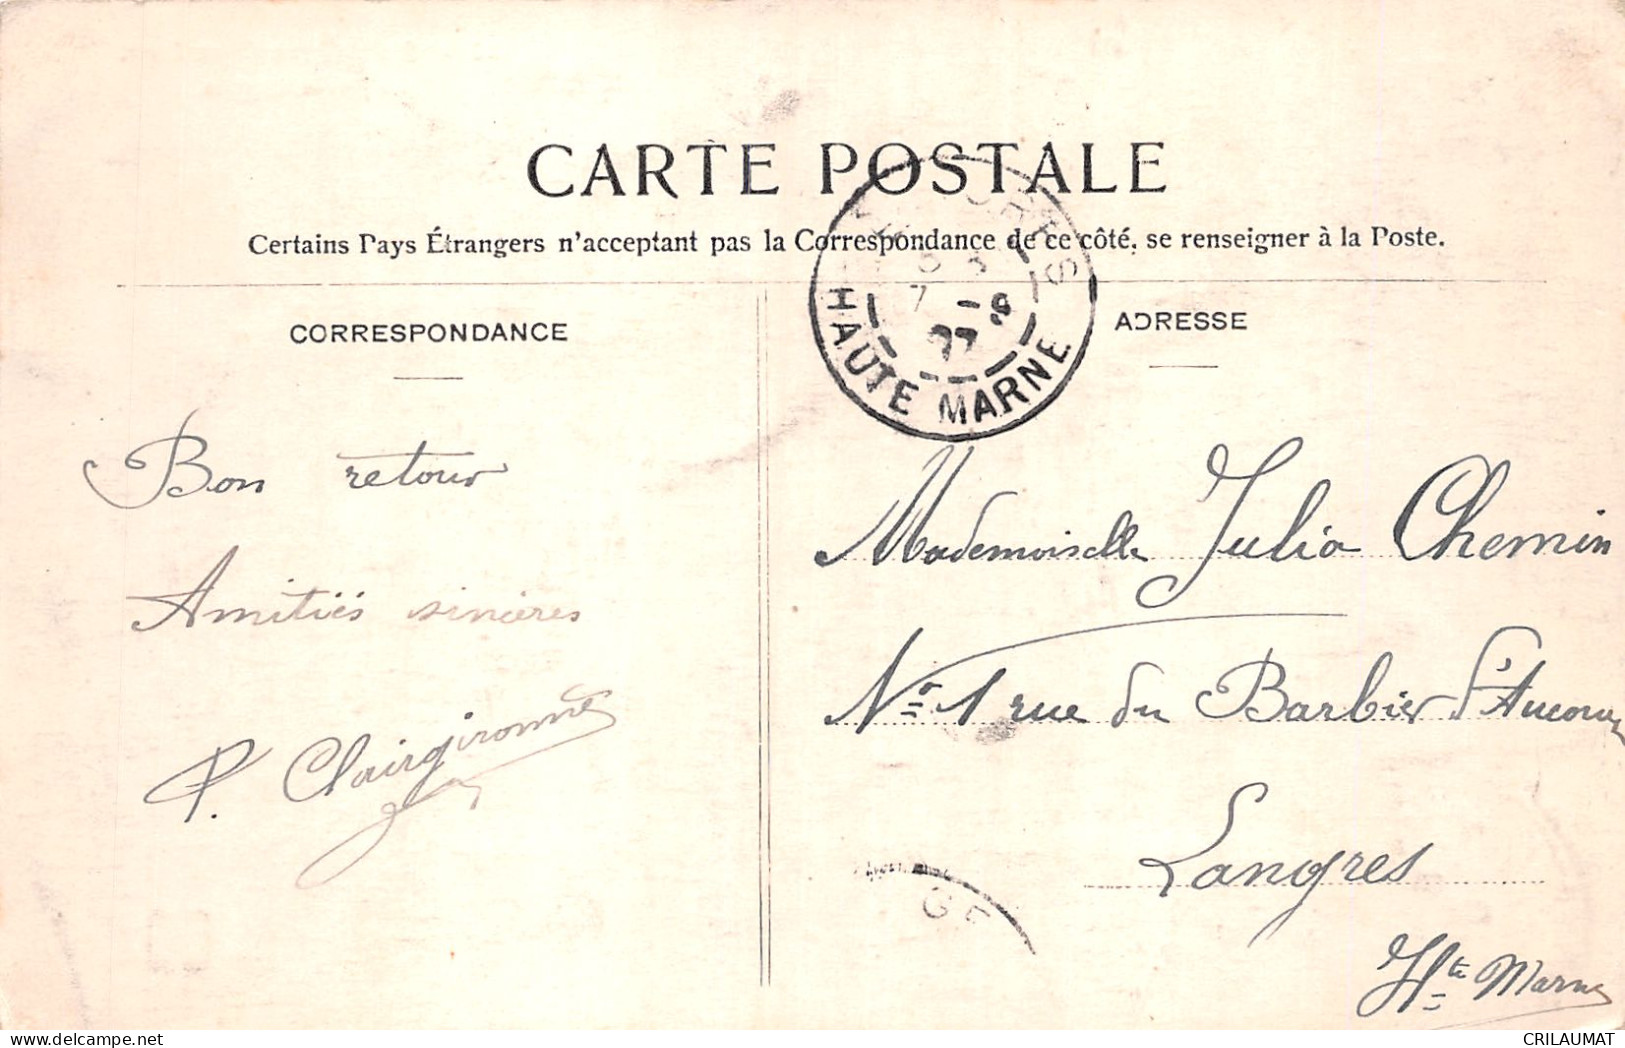 CARTE POSTALE
Certains Pays Étrangers n'acceptant pas la Correspondance de ce côté, se renseigner à la Poste.
CORRESPONDANCE
ADRESSE
HAUTE MARNE
7 -9
07
Bon retour
Amitiés sincères
P. Clairgironnet
Mademoiselle Julia Chemin
No 1 rue du Barbier d'Aucour
Langres
Hte Marne
GE
CRILAUMAT